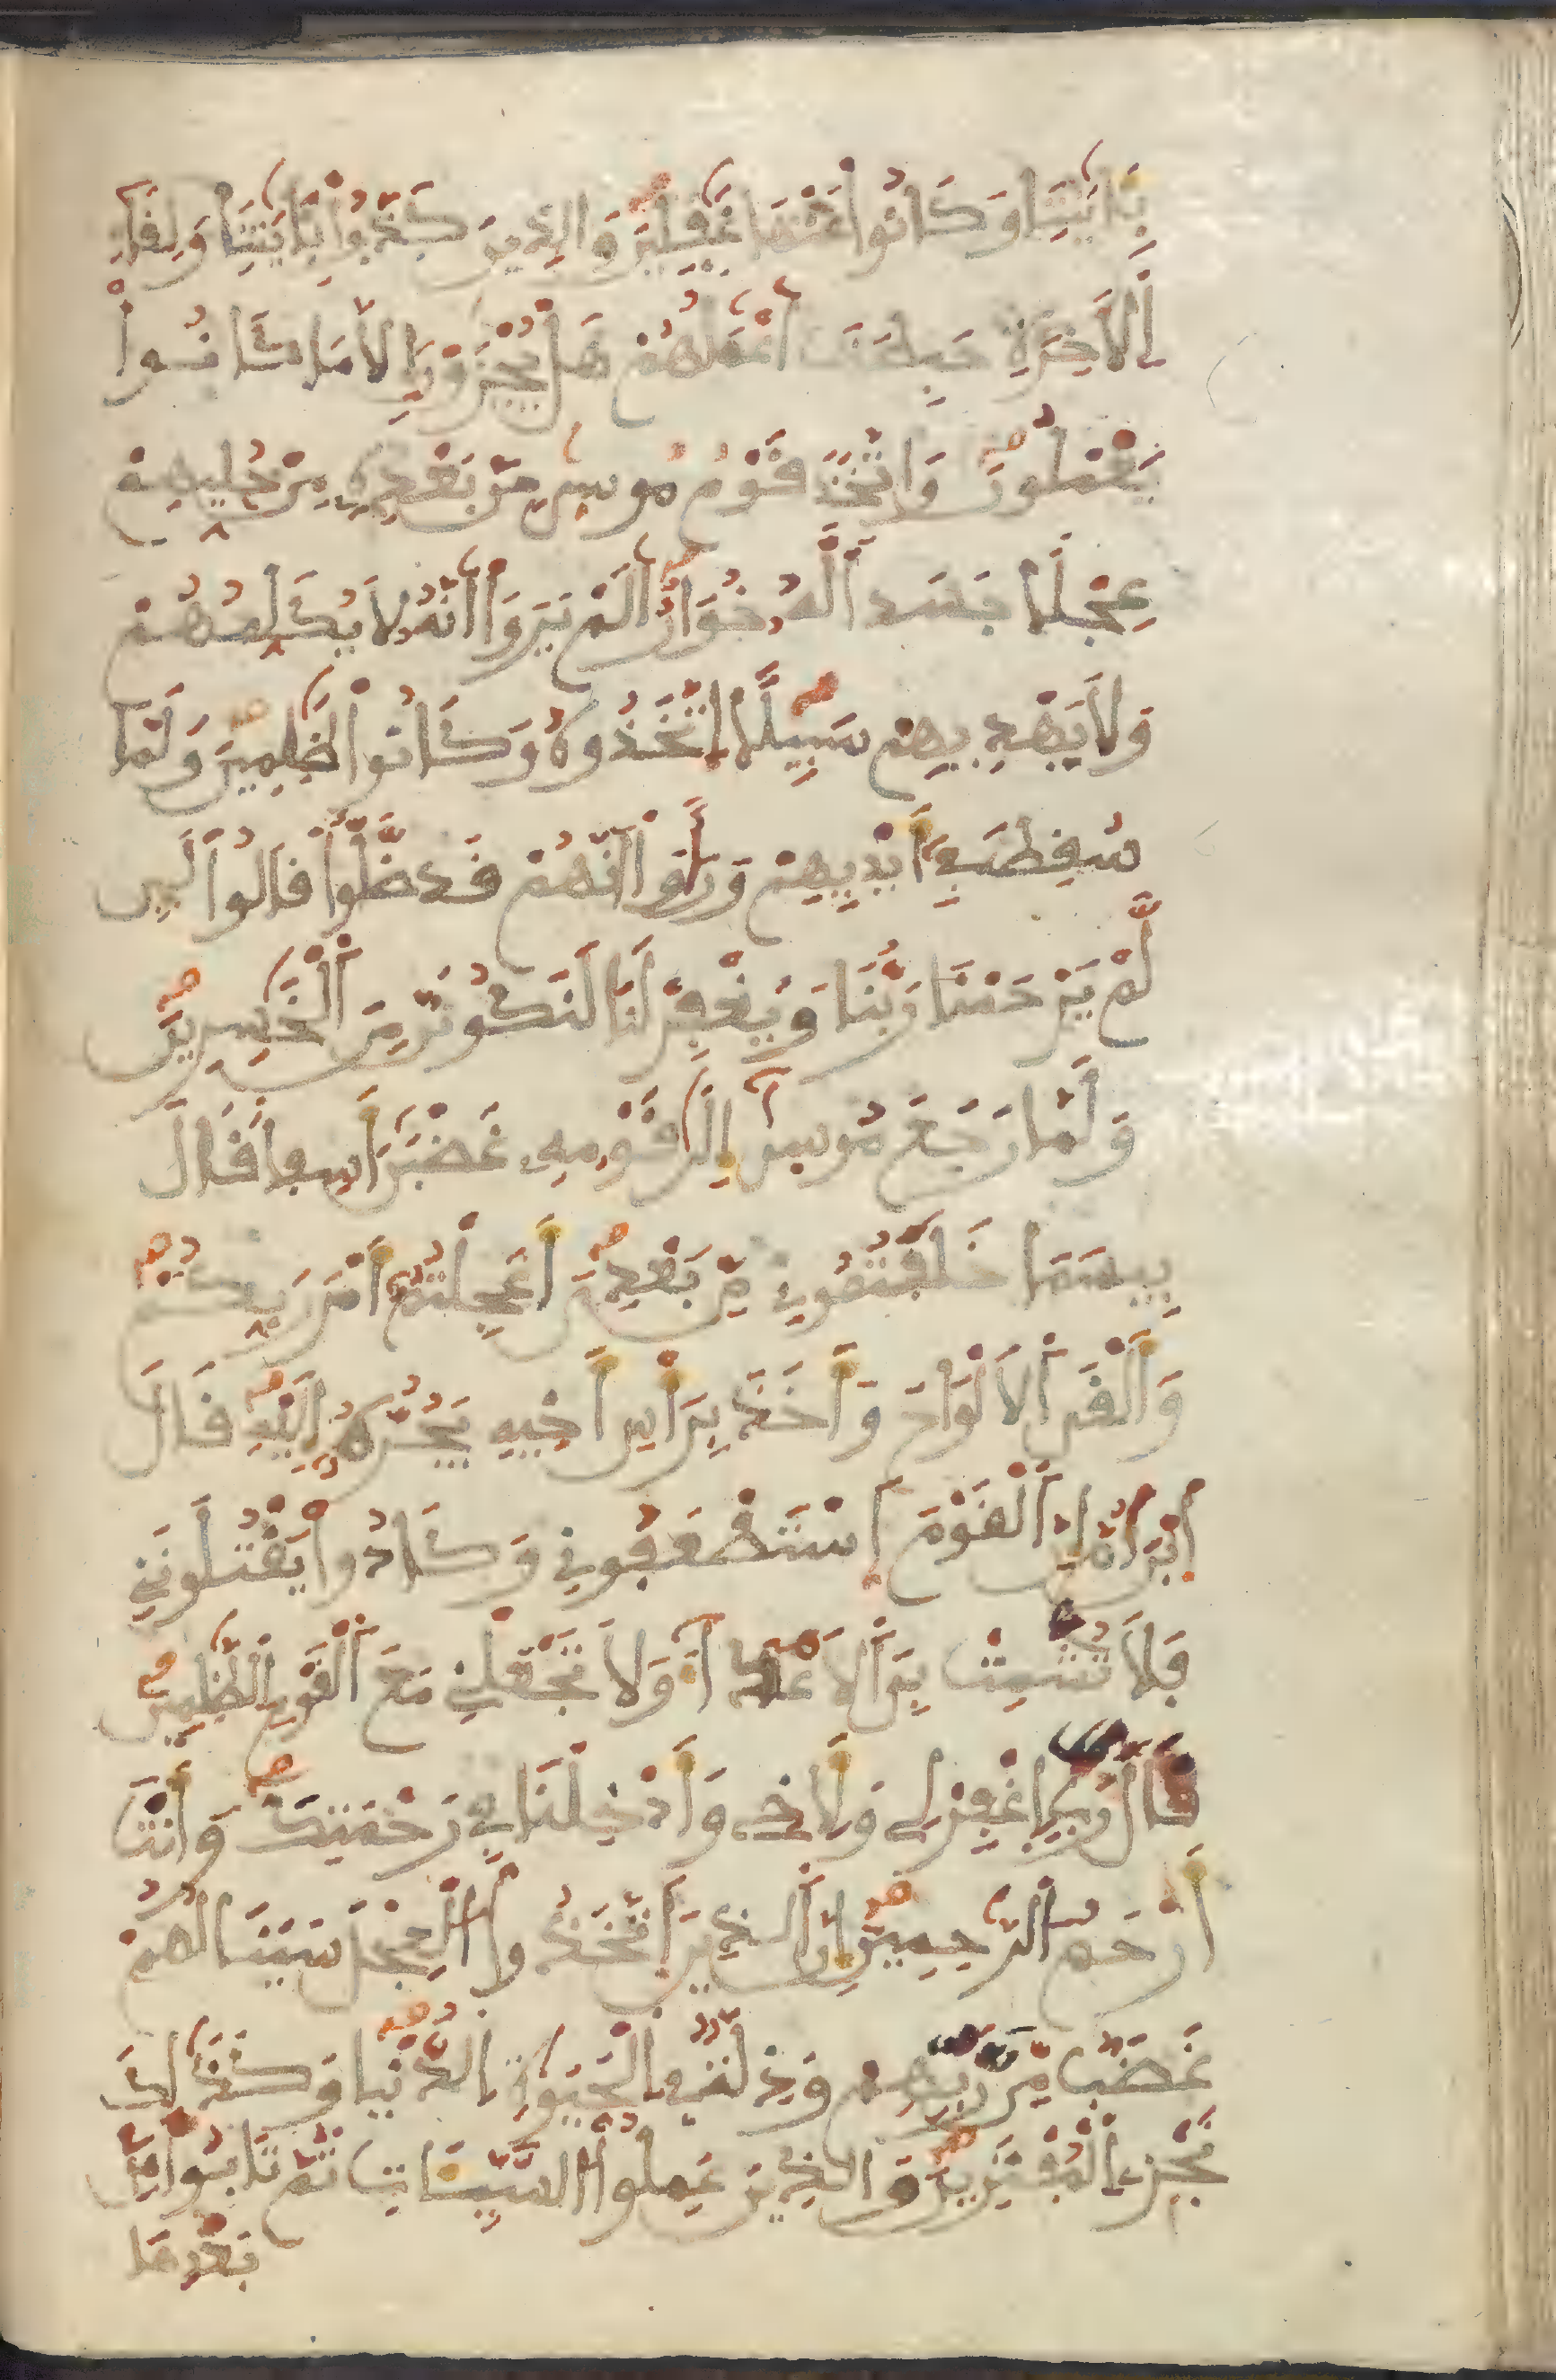 بِـَٔايَٰتِنَا وَكَانُوا۟ عَنْهَا غَٰفِلِينَ وَالذِينَ كَذَّبُوا۟ بِـَٔايَٰتِنَا وَلِقَآءِ
اِ۬لَاخِرَةِ حَبِطَتَ اَعْمَٰلُهُمْ هَلْ يُجْزَوْنَ إِلَّا مَا كَانُوا۟
يَعْمَلُونَ وَاتَّخَذَ قَوْمُ مُوسۭيٰ مِنۢ بَعْدِهِۦ مِنْ حُلِيِّهِمْ
عِجْلًا جَسَداً لَّهُۥ خُوَارٌ اَلَمْ يَرَوَا اَنَّهُۥ لَا يُكَلِّمُهُمْ
وَلَا يَهْدِيهِمْ سَبِيلًا اِ۪تَّخَذُوهُ وَكَانُوا۟ ظَٰلِمِينَ وَلَمَّا
سُقِطَ فِےٓ أَيْدِيهِمْ وَرَأَوَا اَنَّهُمْ قَد ضَّلُّوا۟ قَالُوا۟ لَئِن
لَّمْ يَرْحَمْنَا رَبُّنَا وَيَغْفِرْ لَنَا لَنَكُونَنَّ مِنَ اَ۬لْخَٰسِرِينَ
وَلَمَّا رَجَعَ مُوسۭيٰٓ إِلَىٰ قَوْمِهِۦ غَضْبَٰنَ أَسِفاً قَالَ
بِيسَمَا خَلَفْتُمُونِے مِنۢ بَعْدِيَ أَعَجِلْتُمُۥٓ أَمْرَ رَبِّكُمْ
وَأَلْقَى اَ۬لَالْوَاحَ وَأَخَذَ بِرَأْسِ أَخِيهِ يَجُرُّهُۥٓ إِلَيْهِ قَالَ
اَ۪بْنَ أُمَّ إِنَّ اَ۬لْقَوْمَ اَ۪سْتَضْعَفُونِے وَكَادُوا۟ يَقْتُلُونَنِے
فَلَا تُشْمِتْ بِيَ اَ۬لَاعْدَآءَ وَلَا تَجْعَلْنِے مَعَ اَ۬لْقَوْمِ اِ۬لظَّٰلِمِينَ
قَالَ رَبِّ اِ۪غْفِرْ لِے وَلِأَخِے وَأَدْخِلْنَا فِے رَحْمَتِكَ وَأَنتَ
أَرْحَمُ اُ۬لرَّٰحِمِينَ إِنَّ اَ۬لذِينَ اَ۪تَّخَذُوا۟ اُ۬لْعِجْلَ سَيَنَالُهُمْ
غَضَبٌ مِّن رَّبِّهِمْ وَذِلَّةٌ فِے اِ۬لْحَيَوٰةِ اِ۬لدُّنْيَا وَكَذَٰلِكَ
نَجْزِے اِ۬لْمُفْتَرِينَ وَالذِينَ عَمِلُوا۟ اُ۬لسَّيِّـَٔاتِ ثُمَّ تَابُوا۟ مِنۢ
بَعْدِهَا